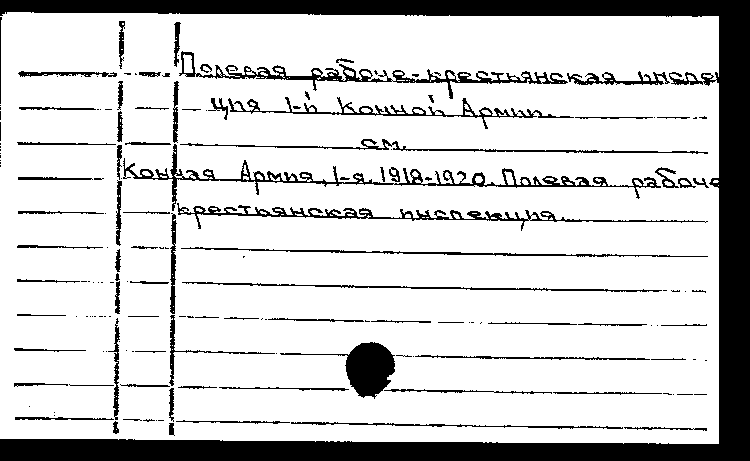 Полевая рабоче-крестьянская инспек
ция 1-й Конной Армии.
см.
Конная Армия, 1-я. 1918-1920. Полевая рабоче
крестьянская инспекция.